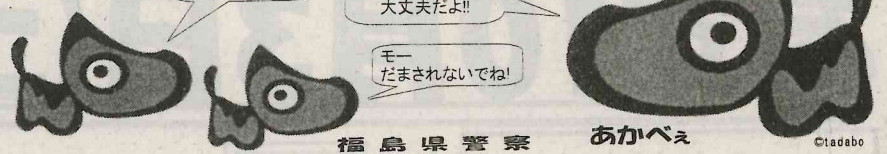 大丈夫だよ!!
モー
だまされないでね!
福島県警察
あかべぇ
©tadabo